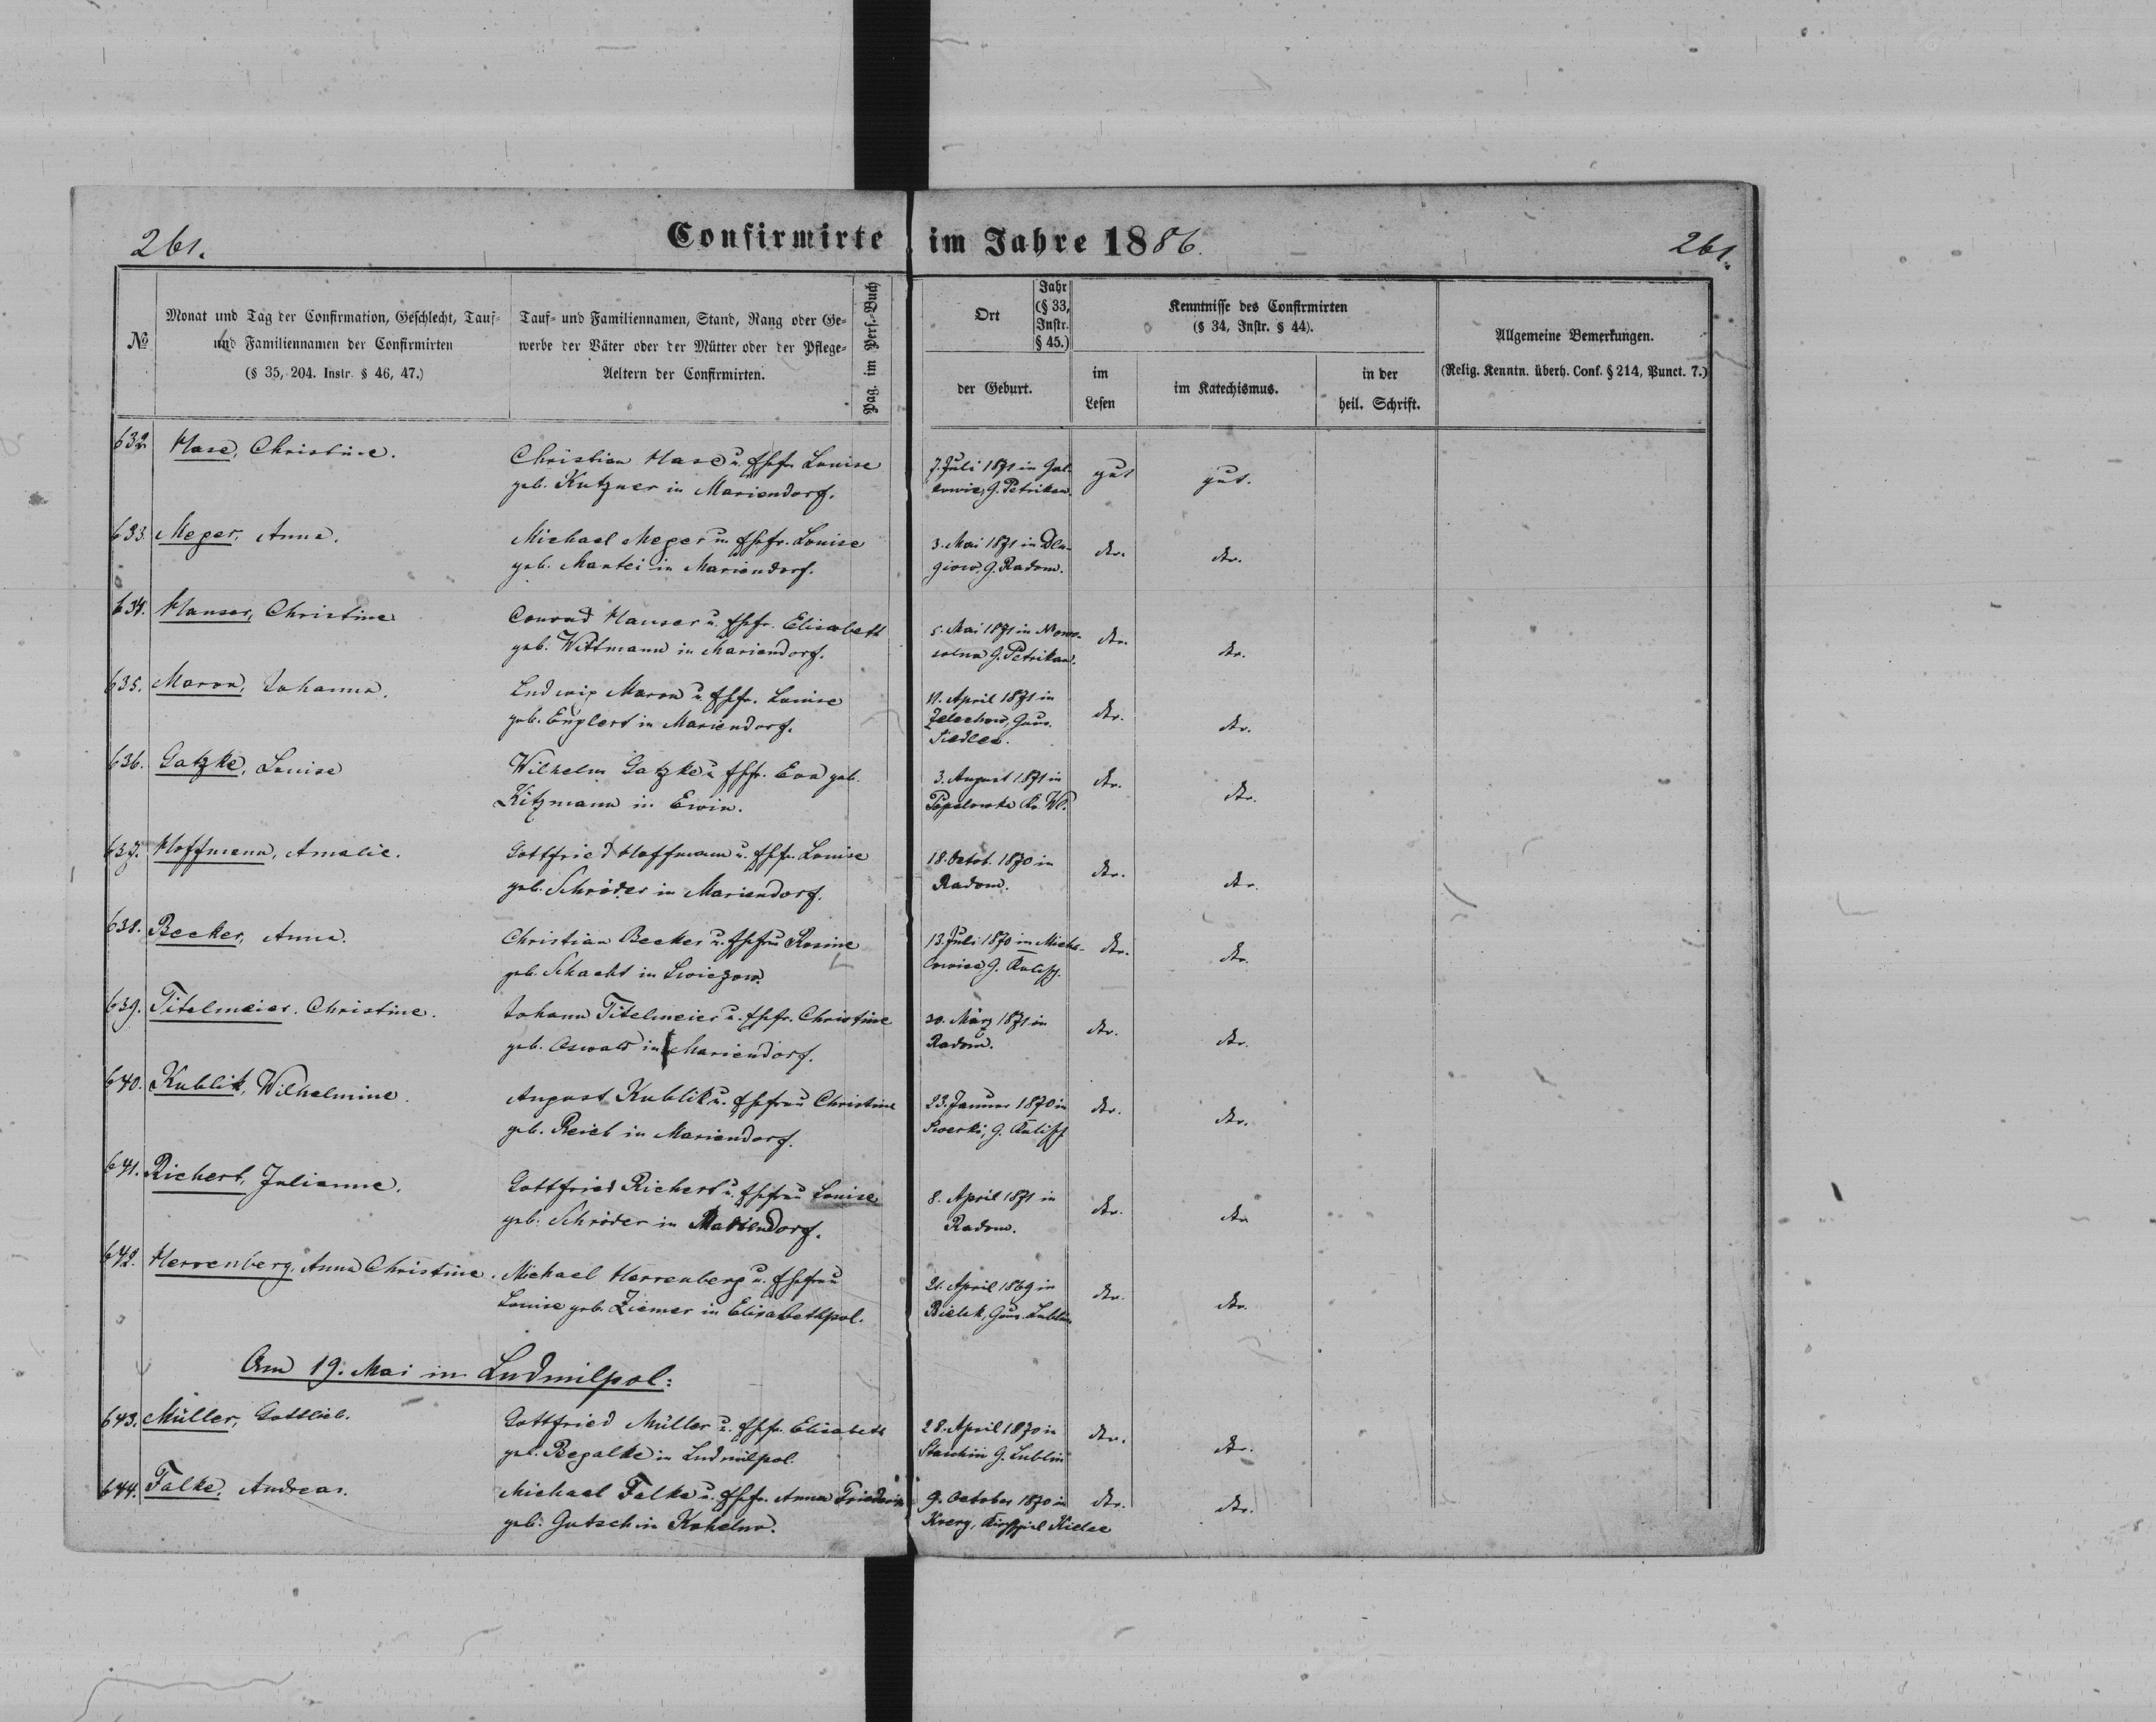 261.
Confirmirte im Jahre 1886.
261.
№
Monat und Tag der Confirmation, Geschlecht, Tauf-
und Familiennamen der Confirmirten
(§ 35, 204. Instr. § 46, 47.)
Tauf- und Familiennamen, Stand, Rang oder Ge-
werbe der Väter oder der Mütter oder der Pflege-
Aeltern der Confirmirten.
Pag. im Pers.-Buch
Ort
Jahr
(§ 33,
Instr.
§ 45.)
der Geburt.
Kenntnisse des Confirmirten
(§ 34, Instr. § 44).
im
Lesen
im Katechismus.
in der
heil. Schrift.
Allgemeine Bemerkungen.
(Relig. Kenntn. überh. Conf. § 214, Punct. 7.)
632. Hase, Christine.
Christian Hase u. Ehefr. Louise
geb. Kutzner in Mariendorf.
7. Juli 1871 in
G. Petrikau.
gut
gut.
633. Meger, Anna.
Michael Meger u. Ehefr. Louise
geb. Mantei in Mariendorf.
3. Mai 1871 in Dlu-
giow, G. Radom.
dtr.
dtr.
634. Hauser, Christine
Conrad Hauser u. Ehefr. Elisabeth
geb. Wittmann in Mariendorf.
5. Mai 1871 in Nowo-
solna G. Petrikau.
dtr.
dtr.
635. Maron, Johanna.
Ludwig Maron u. Ehefr. Louise
geb. Englert in Mariendorf.
11. April 1871 in
Zelechow, Gouv.
Siedlec.
dtr.
dtr.
636. Gatzke, Louise
Wilhelm Gatzke u. Ehefr. Eva geb.
Kitzmann in Erwin.
3. August 1871 in
Popelowka
dtr.
dtr.
637. Hoffmann, Amalie.
Gottfried Hoffmann u. Ehefr. Louise
geb. Schröder in Mariendorf.
18. Octob. 1870 in
Radom.
dtr.
dtr.
638. Becker, Anna.
Christian Becker u. Ehefrau Rosine
geb. Schacht in
13. Juli 1870 in Micha-
lowice G. Kalisch.
dtr.
dtr.
639. Titelmeier, Christine.
Johann Titelmeier u. Ehefr. Christine
geb. Oswald in Mariendorf.
30. März 1871 in
Radom.
dtr.
dtr.
640. Kublik, Wilhelmine.
August Kublik u. Ehefrau Christine
geb. Reich in Mariendorf.
23. Januar 1870 in
G. Kalisch
dtr.
dtr.
641. Richert, Julianne.
Gottfried Richert u. Ehefrau Louise
geb. Schröder in Mariendorf.
8. April 1871 in
Radom.
dtr.
dtr
642. Herrenberg, Anna Christine.
Michael Herrenberg u. Ehefrau
Louise geb. Ziemer in Elisabethpol.
21. April 1869 in
Gouv. Lublin
dtr.
dtr.
Am 19. Mai in Ludmilpol:
643. Müller, Gottlieb.
Gottfried Müller u. Ehefr. Elisabeth
geb. Regalke in Ludmilpol.
28. April 1870 in
G. Lublin
dtr.
dtr.
644. Falke, Andreas.
Michael Falke u. Ehefr. Anna
geb. Gutsch in
9. October 1870 in
Kirchspiel Kielce
dtr.
dtr.